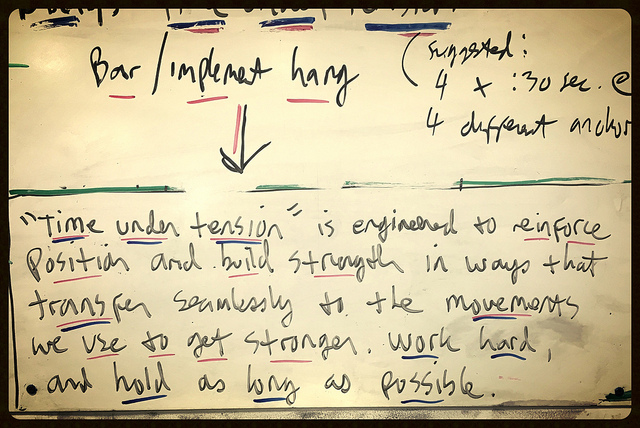 Time under tension
Bar / implement hang
(suggested:
4 x :30 sec. @
4 different anchor
"Time under tension" is engineered to reinforce
position and build strength in ways that
transfer seamlessly to the movements
we use to get stronger. Work hard,
and hold as long as possible.